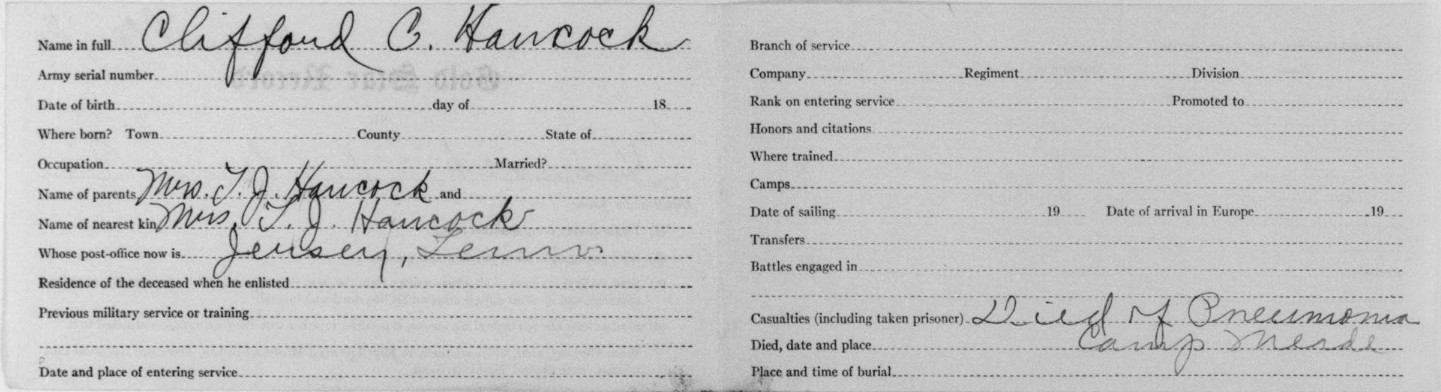 Name in full Clifford C. Hancock
Army serial number
Date of birth day of 18
Where born? Town County State of
Occupation Married?
Name of parents Mrs. T. J. Hancock and
Name of nearest kin Mrs. T. J. Hancock
Whose post-office now is Jersey, Tenn.
Residence of the deceased when he enlisted
Previous military service or training
Date and place of entering service
Branch of service
Company Regiment Division
Rank on entering service Promoted to
Honors and citations
Where trained
Camps
Date of sailing 19 Date of arrival in Europe 19
Transfers
Battles engaged in
Casualties (including taken prisoner) Died of Pneumonia
Died, date and place Camp Meade
Place and time of burial